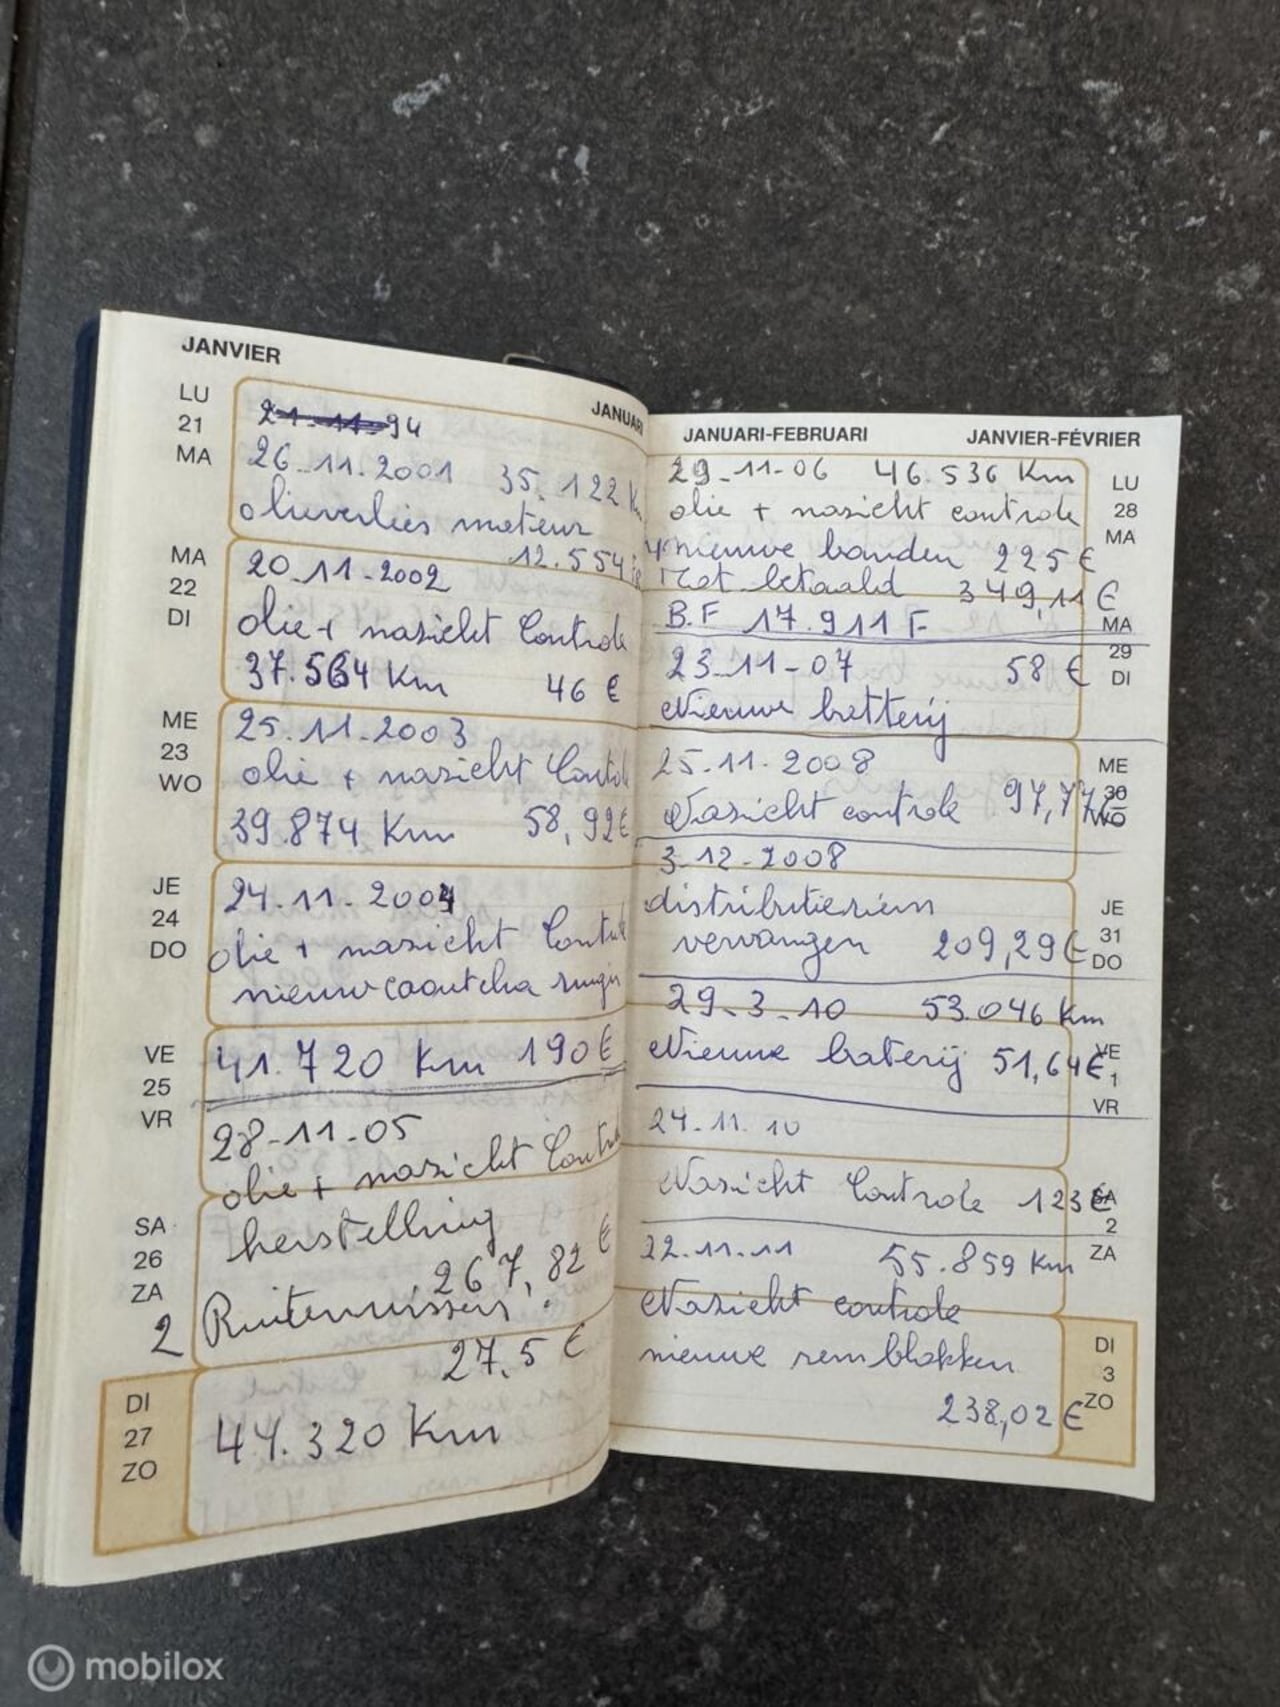 JANVIER
JANUARI
LU
21
MA
21-11-94
26-11-2001 35.122 K
olieverlies moteur
12.554
MA
22
DI
20-11-2002
olie + nazicht Controle
37.564 Km 46 €
ME
23
WO
25.11.2003
olie + nazicht Contol
39.874 Km 58,92€
JE
24
DO
24.11.2004
olie + nazicht Contr
nieuw caoutcha
VE
25
VR
41.720 Km 190€
28-11-05
olie + nazicht Contr
SA
26
ZA
herstelling
267,82 €
2 Ruitenwissers
27.5 €
DI
27
ZO
44.320 Km
JANUARI-FEBRUARI JANVIER-FÉVRIER
LU
28
MA
29-11-06 46.536 Km
olie + nazicht controle
4 nieuwe banden 225€
Tot betaald 349,11 €
B.F 17.911 F
MA
29
DI
23-11-07 58 €
Nieuwe batterij
ME
30
WO
25.11.2008
Nazicht controle 97,77€
3-12-2008
JE
31
DO
distributieriem
vervangen 209,29€
29-3-10 53.046 Km
VE
1
VR
Nieuwe baterij 51,64€
24.11.10
SA
2
ZA
Nazicht Controle 123€
22.11.11 55.859 Km
Nazicht controle
DI
3
ZO
nieuwe remblokken
238,02 €
mobilox